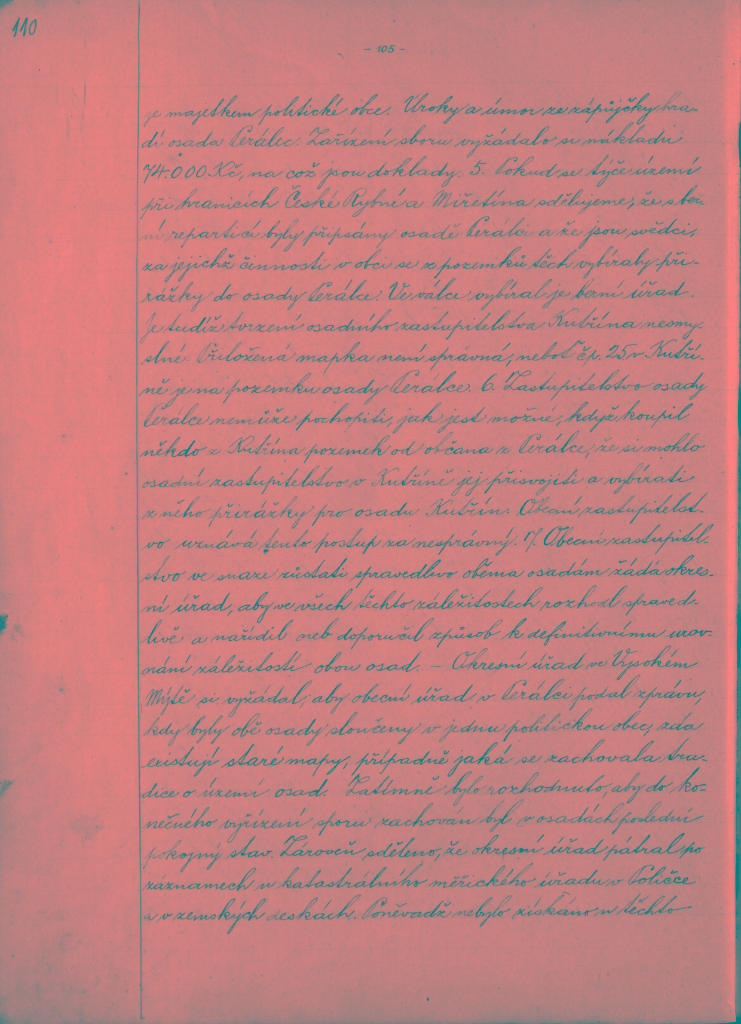 110
- 105 -
je majetkem politické obce. Úroky a úmor ze zápůjčky hra-
dí osada Perálec. Zařízení sboru vyžádalo si nákladu
74.000 Kč, na což jsou doklady. 5. Pokud se týče území
při hranicích České Rybné a Miřetína sdělujeme, že s ber-
ní reparticí byly připsány osadě Perálci a že jsou svědci,
za jejichž činnosti v obci se z pozemků těch vybíraly při-
rážky do osady Perálce. Ve válce vybíral je berní úřad.
Je tudíž tvrzení osadního zastupitelstva Kutřína nesmy-
slné. Přiložená mapka není správná, neboť čp. 25 v Kutří-
ně je na pozemku osady Peralce. 6. Zastupitelstvo osady
Perálce nemůže pochopiti, jak jest možné, když koupil
někdo z Kutřína pozemek od občana z Perálce, že si mohlo
osadní zastupitelstvo v Kutříně jej přisvojiti a vybírati
z něho přirážky pro osadu Kutřín. Obecní zastupitelst-
vo uznává tento postup za nesprávný. 7. Obecní zastupitel-
stvo ve snaze zůstati spravedlivo oběma osadám žádá okres-
ní úřad, aby ve všech těchto záležitostech rozhodl spraved-
livě a nařídil neb doporučil způsob k definitivnímu urov-
nání záležitosti obou osad. – Okresní úřad ve Vysokém
Mýtě si vyžádal, aby obecní úřad v Perálci podal zprávu,
kdy byly obě osady sloučeny v jednu politickou obec, zda
existují staré mapy, případně jaká se zachovala tra-
dice o území osad. Zatímně bylo rozhodnuto, aby do ko-
nečného vyřízení sporu zachován byl v osadách poslední
pokojný stav. Zároveň sděleno, že okresní úřad pátral po
záznamech u katastrálního měřického úřadu v Poličce
a v zemských deskách. Poněvadž nebylo získáno u těchto